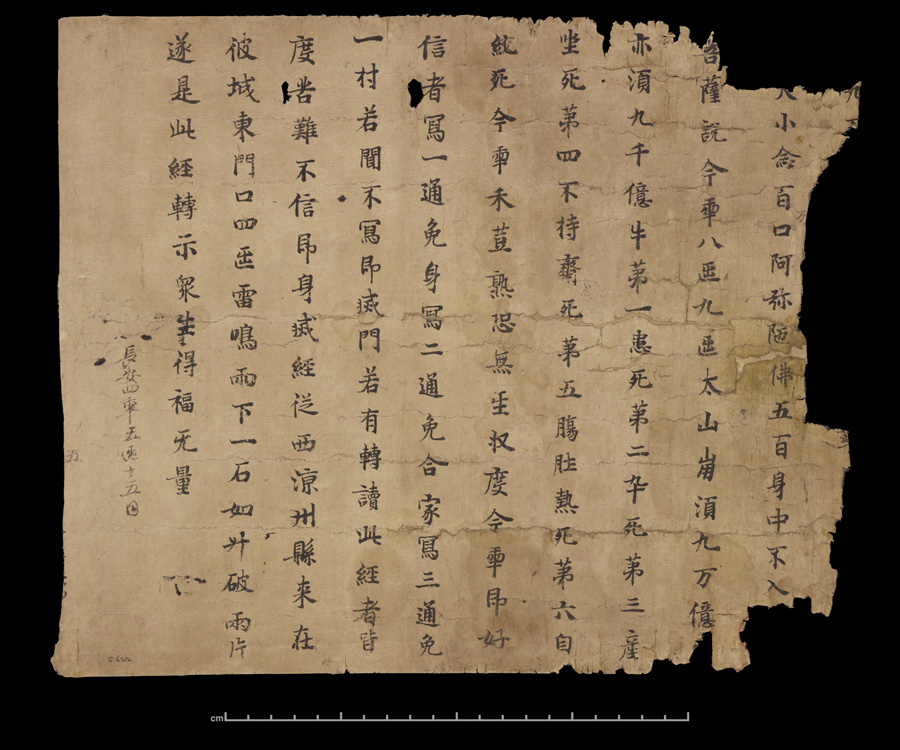 大小念百口阿弥陁佛五百身中不入
菩薩說今𠡦八𠥱九𠥱太山崩湏九万億
亦湏九千億牛第一患死第二卒死第三產
坐死第四不持齋死第五腸肚熱死第六自
死今𠡦禾荳熟恐無𤯔収度今𠡦即好
信者寫一通免身寫二通免合家寫三通免
一村若聞不寫即滅門若有轉讀此經者皆
度苦難不信即身滅經從西涼州縣来在
彼城東門口四𠥱雷鳴雨下一石如升破兩片
遂是此經轉示衆生得福无量
長安四𠡦五𠥱十五日
S.622
cm